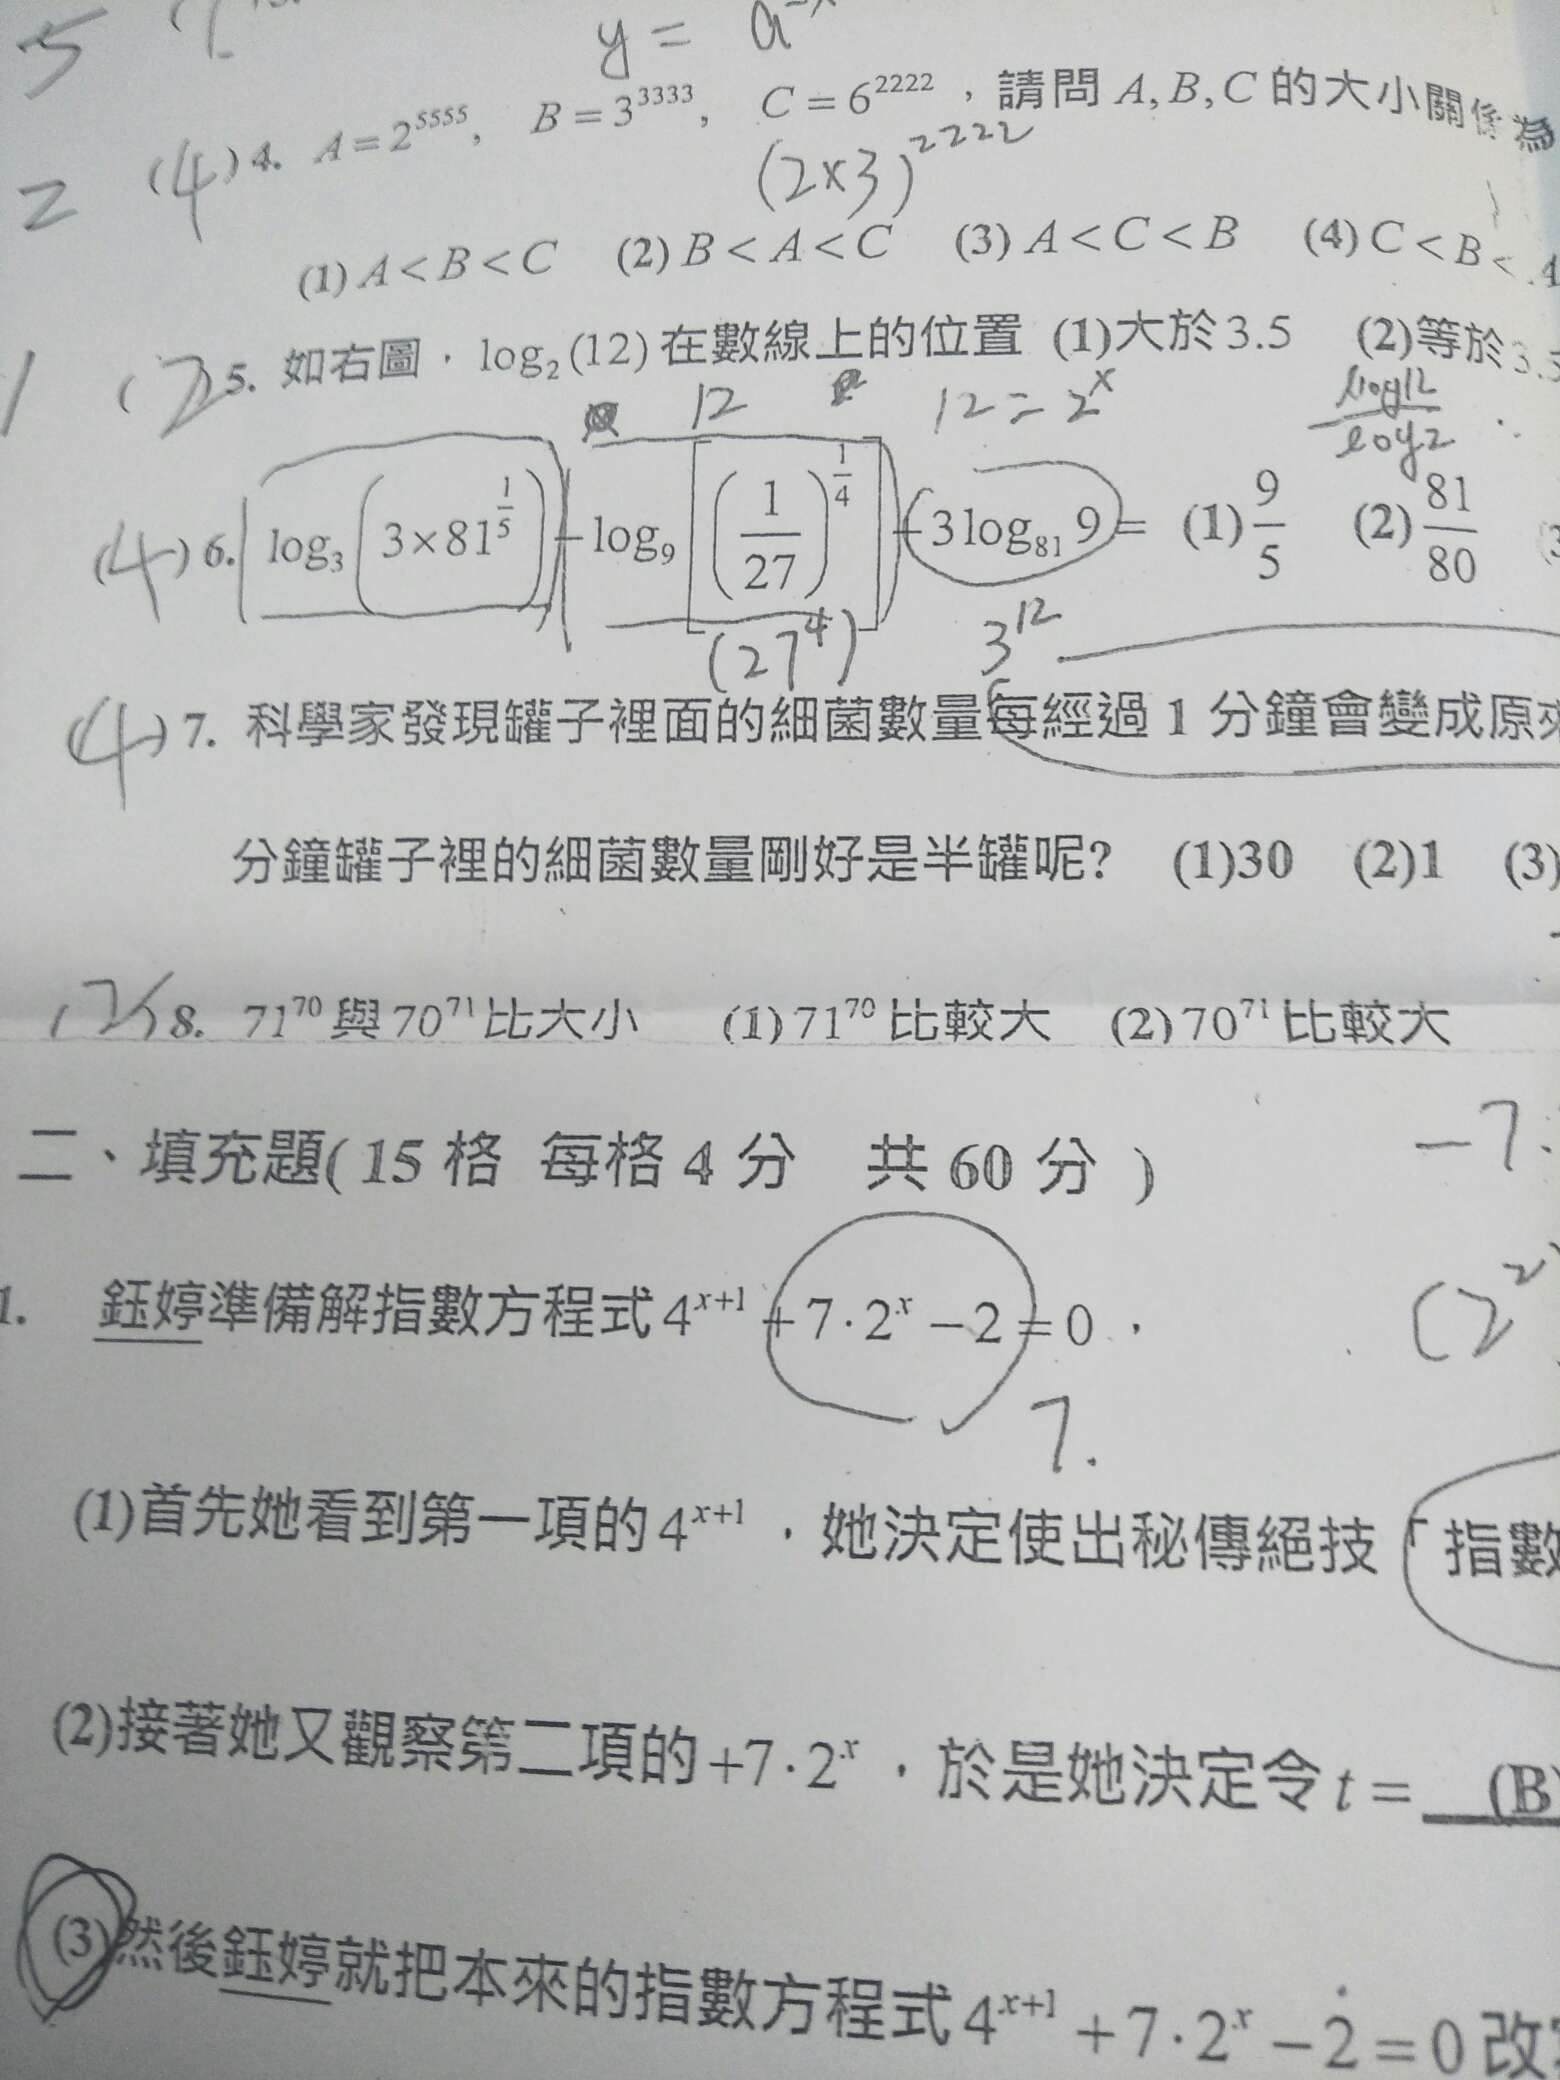 5
y = a⁻ˣ
(4) 4. A=2⁵⁵⁵⁵, B=3³³³³, C=6²²²², 請問 A,B,C 的大小關係為
(2×3)²²²²
2
(1) A<B<C (2) B<A<C (3) A<C<B (4) C<B<A
1 (2) 5. 如右圖，log₂(12) 在數線上的位置 (1)大於3.5 (2)等於3.5
12 12=2ˣ log12/log2
(4) 6. log₃(3×81^(1/5)) − log₉[(1/27)^(1/4)] + 3log₈₁9 = (1) 9/5 (2) 81/80 (3
(27⁴) 3¹²
(4) 7. 科學家發現罐子裡面的細菌數量每經過 1 分鐘會變成原來
分鐘罐子裡的細菌數量剛好是半罐呢? (1)30 (2)1 (3)
(2) 8. 71⁷⁰ 與 70⁷¹ 比大小 (1) 71⁷⁰ 比較大 (2) 70⁷¹ 比較大
二、填充題( 15 格 每格 4 分 共 60 分 )
−7.
1. 鈺婷準備解指數方程式 4ˣ⁺¹+7·2ˣ−2=0，
(2²
7.
(1)首先她看到第一項的 4ˣ⁺¹，她決定使出秘傳絕技「指數
(2)接著她又觀察第二項的+7·2ˣ，於是她決定令 t = (B)
(3)然後鈺婷就把本來的指數方程式 4ˣ⁺¹+7·2ˣ−2=0 改